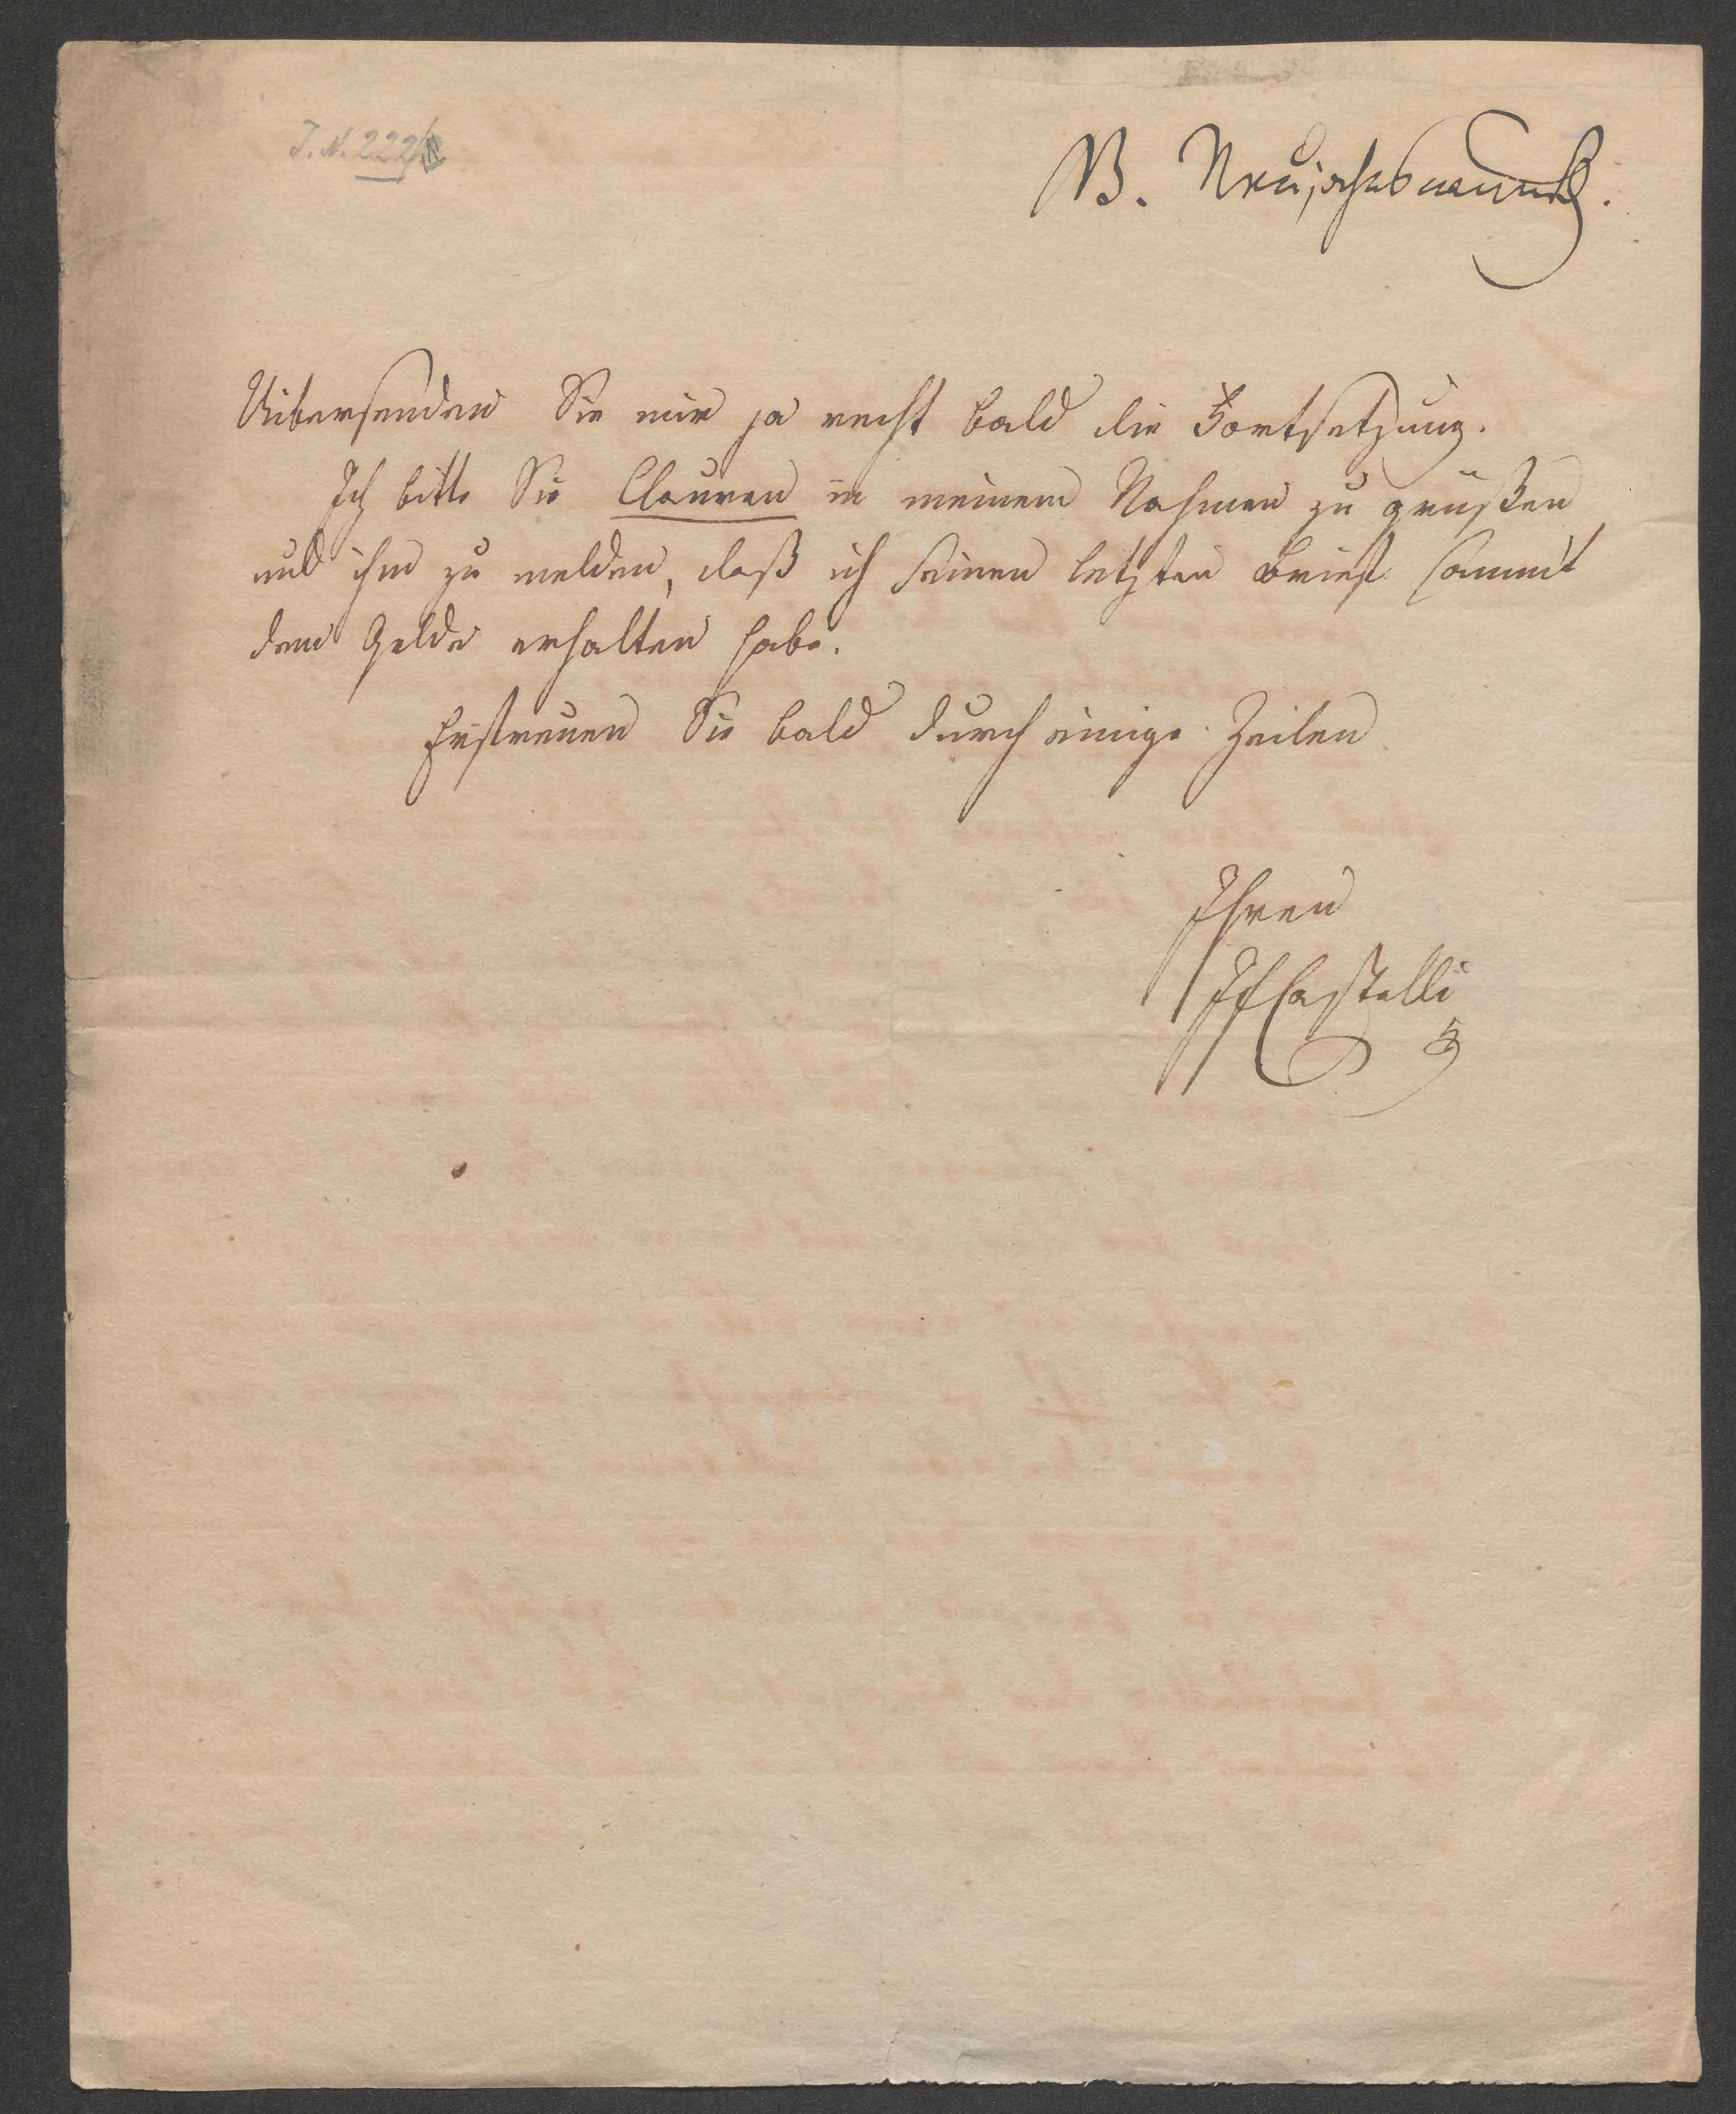 J. N. 222/
B. Neujahrswunsch.
Uibersenden Sie mir ja recht bald die Fortsetzung.
Ich bitte Sie Clauren in meinem Nahmen zu grüßen
und ihm zu melden, daß ich seinen letzten Brief sammt
dem Gelde erhalten habe.
Erfreuen Sie bald durch einige Zeilen
Ihren
IFCastelli